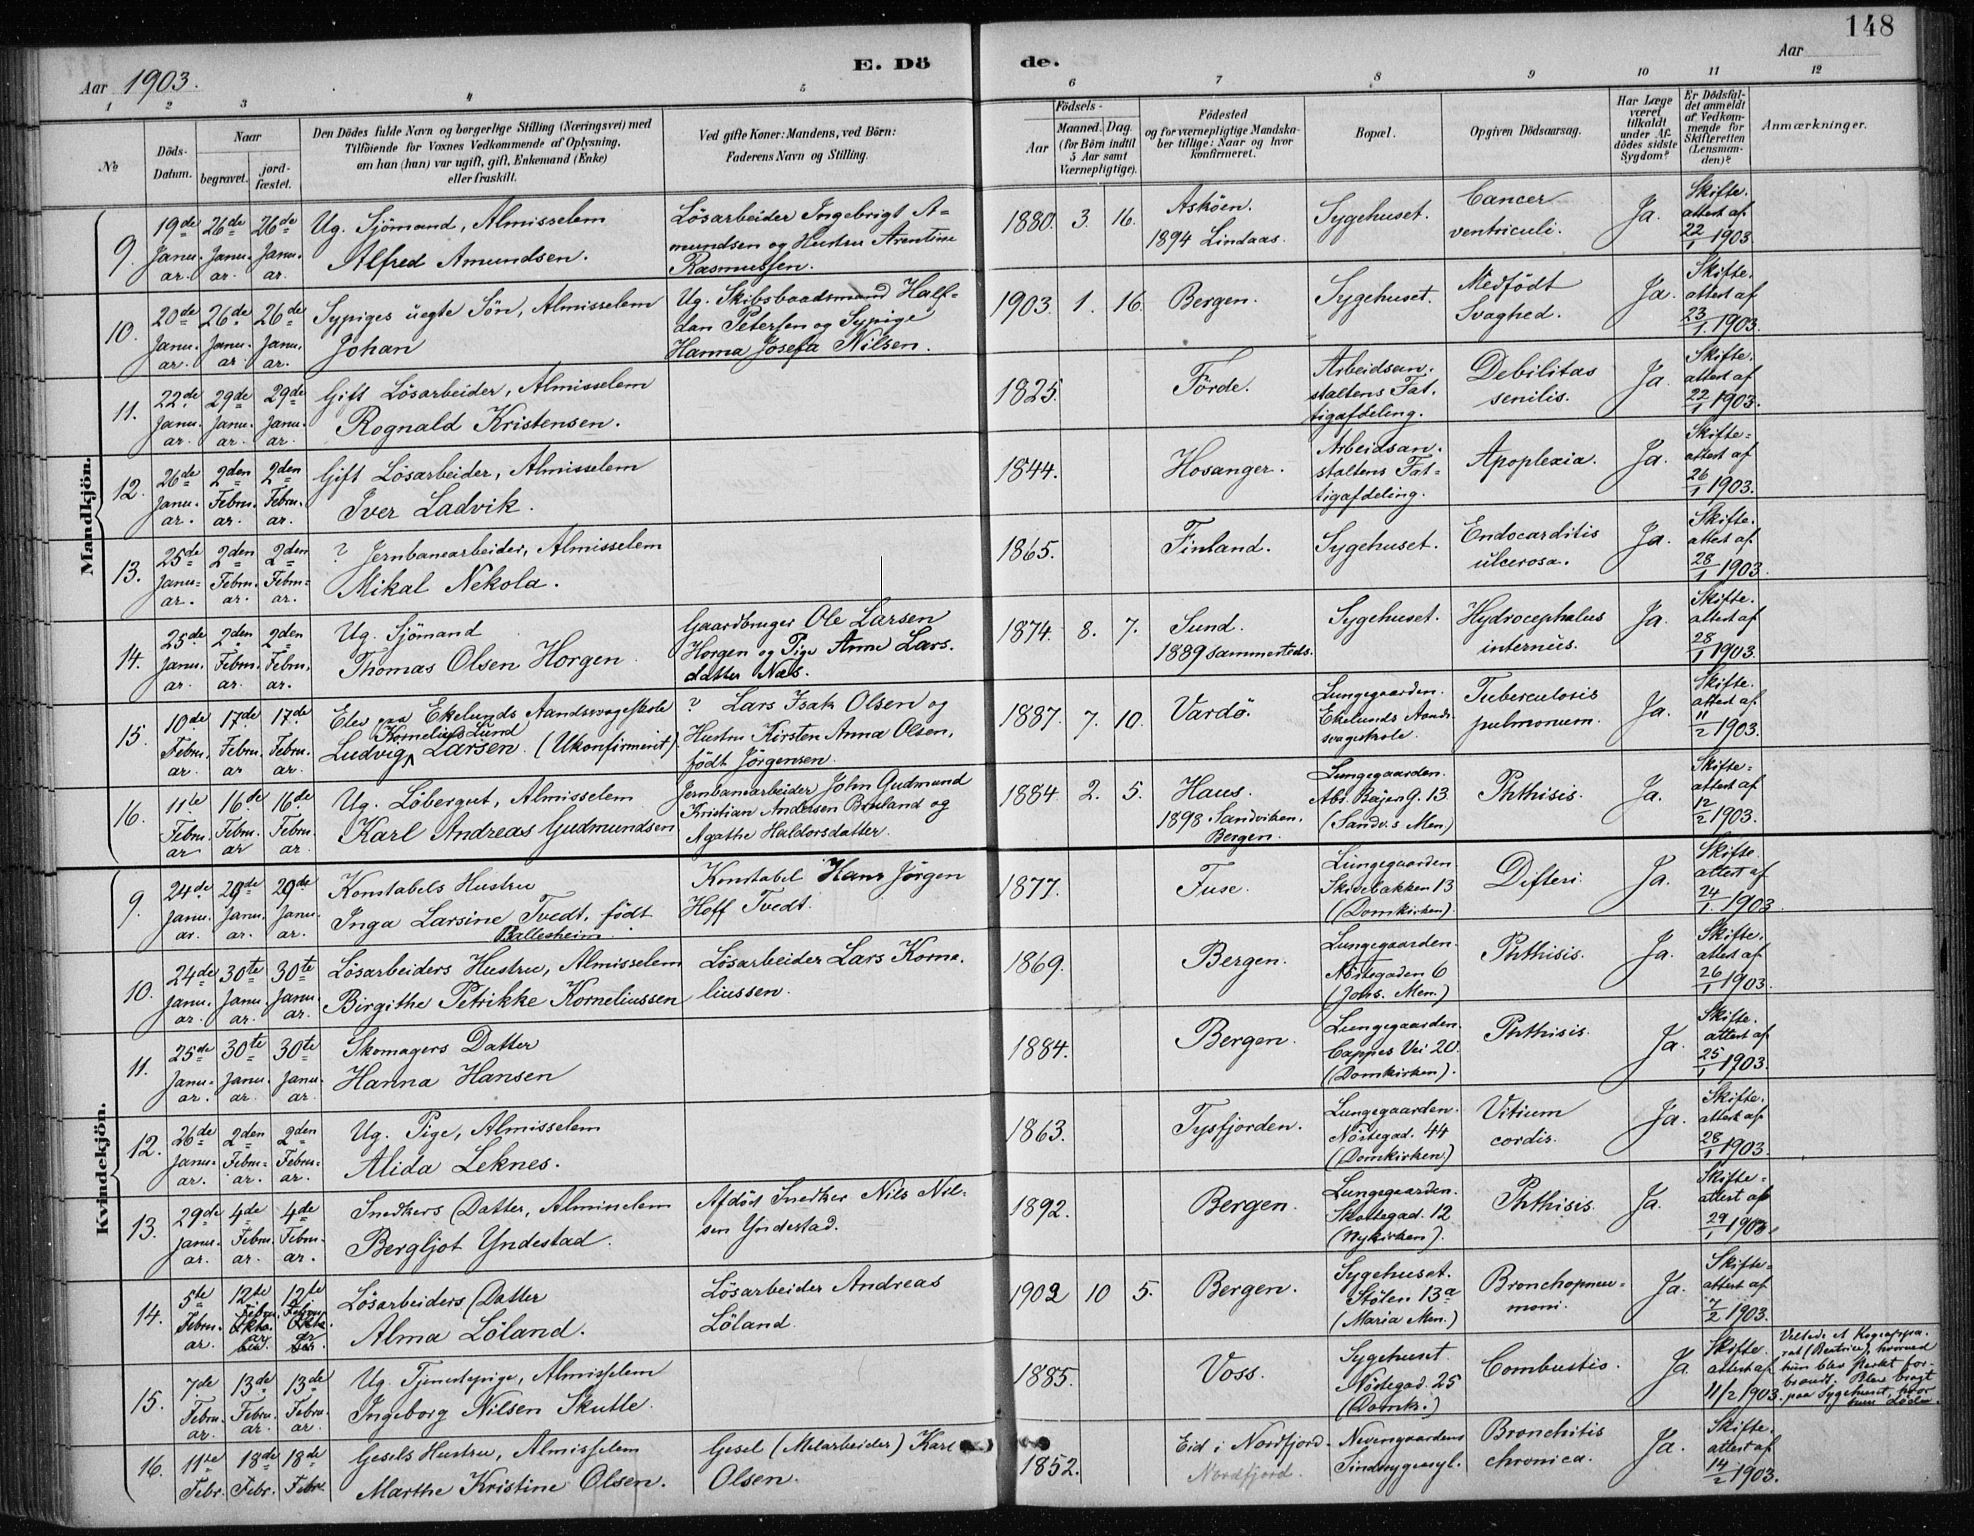 148
E. Döde.
Aar 1903.
Aar
1 2 3 4 5 6 7 8 9 10 11 12
№
Döds-Datum.
Naar
begravet.
jord-fæstet.
Den Dödes fulde Navn og borgerlige Stilling (Næringsvei) med
Tilföiende for Voxnes Vedkommende af Oplysning,
om han (hun) var ugift, gift, Enkemand (Enke)
eller fraskilt.
Ved gifte Koner: Mandens, ved Börn:
Faderens Navn og Stilling.
Födsels-
Aar
Maaned. Dag.
(for Börn indtil
5 Aar samt
Værnepligtige).
Födested
og for værnepligtige Mandska-
ber tillige: Naar og hvor
konfirmeret.
Bopæl.
Opgiven Dödsaarsag.
Har Læge
været
tilkaldt
under Af-
dödes sidste
Sygdom?
Er Dödsfal-
det anmeldt
af Vedkom-
mende for
Skifteretten
(Lensman-
den)?
Anmærkninger.
Mandkjön.
9. 19de Janu-ar. 26de Janu-ar. 26de Janu-ar. Ug. Sjömand, Almisselem
Alfred Amundsen.
Lösarbeider Ingebrigt A-
mundsen og Hustru Arentine
Rasmussen.
1880. 3. 16. Asköen.
1894 Lindaas.
Sygehuset.
Cancer
ventriculi.
Ja.
Skifte-
attest af
22/1 1903.
10. 20de Janu-ar. 26de Janu-ar 26de Janu-ar. Sypiges uegte Sön, Almisselem
Johan
Ug. Skibsbaadsmand Half-
dan Petersen og Sypige
Hanna Josefa Nilsen.
1903. 1. 16. Bergen.
Sygehuset.
Medfödt
Svaghed.
Ja.
Skifte-
attest af
23/1 1903.
11. 22de Janu-ar. 29de Janu-ar. 29de Janu-ar. Gift Lösarbeider, Almisselem
Rognald Kristensen.
1825. Förde.
Arbeidsan-
staltens Fat-
tigafdeling.
Debilitas
senilis.
Ja.
Skifte-
attest af
22/1 1903.
12. 26de Janu-ar. 2den Febru-ar. 2den Febru-ar. Gift Lösarbeider, Almisselem
Iver Ladvik.
1844. Hosanger.
Arbeidsan-
staltens Fat-
tigafdeling.
Apoplexia.
Ja.
Skifte-
attest af
26/1 1903.
13. 25de Janu-ar. 2den Febru-ar. 2den Febru-ar. ? Jernbanearbeider, Almisselem
Mikal Nekola.
1865. Finland.
Sygehuset.
Endocarditis
ulcerosa.
Ja.
Skifte-
attest af
28/1 1903.
14. 25de Janu-ar. 2den Febru-ar. 2den Febru-ar. Ug. Sjömand
Thomas Olsen Horgen
Gaardbruger Ole Larsen
Horgen og Pige Anne Lars-
datter Næs.
1874. 8. 7. Sund.
1889 sammesteds.
Sygehuset.
Hydrocephalus
internus.
Ja.
Skifte-
attest af
28/1 1903.
15. 10de Febru-ar. 17de Febru-ar 17de Febru-ar. Elev paa Ekelunds Aandssvageskole
Kornelius Lund
Ludvig Larsen. (Ukonfirmeret).
? Lars Isak Olsen og
Hustru Kirsten Anna Olsen,
födt Jörgensen.
1887. 7. 10. Vardö.
Lungegaarden.
Ekelunds Aands-
svageskole.
Tuberculosis
pulmonum.
Ja.
Skifte-
attest af
11/2 1903.
16. 11te Febru-ar 16de Febru-ar 16de Febru-ar. Ug. Löbergut, Almisselem
Karl Andreas Gudmundsen
Jernbanearbeider John Gudmund
Kristian Andersen og
Agathe Haldorsdatter.
1884 2. 5. Haus.
1898 Sandviken.
Bergen.
Lungegaarden.
Abs. Beyer G. 13
(Sandv.s Men.)
Phthisis.
Ja.
Skifte-
attest af
12/2 1903.
Kvindekjön.
9. 24de Janu-ar. 29de Janu-ar. 29de Janu-ar. Konstabels Hustru
Inga Larsine Tvedt, födt
Ballesheim.
Konstabel Hans Jörgen
Hoff Tvedt.
1877. Fuse.
Lungegaarden.
Skivebakken 13
(Domkirken).
Difteri.
Ja.
Skifte-
attest af
24/1 1903.
10. 24de Janu-ar. 30te Janu-ar. 30te Janu-ar. Lösarbeiders Hustru, Almisselem
Birgithe Petrikke Korneliussen
Lösarbeider Lars Korne-
liussen.
1869. Bergen.
Lungegaarden.
Nöstegaden 6
(Johs. Men.)
Phthisis.
Ja.
Skifte-
attest af
26/1 1903.
11. 25de Janu-ar. 30te Janu-ar. 30te Janu-ar. Skomagers Datter
Hanna Hansen
1884. Bergen.
Lungegaarden.
Cappes Vei 20.
(Domkirken).
Phthisis.
Ja.
Skifte-
attest af
25/1 1903.
12. 26de Janu-ar. 2den Febru-ar. 2den Febru-ar. Ug. Pige, Almisselem
Alida Leknes.
1863. Tysfjorden.
Lungegaarden.
Nöstegad. 44
(Domkirken)
Vitium
cordis.
Ja.
Skifte-
attest af
28/1 1903.
13. 29de Janu-ar. 4de Febru-ar. 4de Febru-ar. Snedkers Datter, Almisselem
Bergljot Yndestad.
Afdöd Snedker Nils Nil-
sen Yndestad.
1892. Bergen.
Lungegaarden.
Skottegad. 12
(Nykirken).
Phthisis.
Ja.
Skifte-
attest af
29/1 1903.
14. 5te Febru-ar. 12te Febru-ar 12te Febru-ar Lösarbeiders Datter
Alma Löland.
Lösarbeider Andreas
Löland.
1902 10 5. Bergen.
Sygehuset.
Stölen 13a
(Maria Men.)
Bronchopneu-
moni.
Ja.
Skifte-
attest af
7/2 1903.
15. 7de Febru-ar. 13de Febru-ar. 13de Febru-ar. Ug. Tjenestepige, Almisselem
Ingeborg Nilsen Skutle.
1885. Voss.
Sygehuset.
Nöstegad. 25
(Domk.)
Combustio.
Ja
Skifte-
attest af
11/2 1903.
Veltede et Kogeappa-
rat (Beatrice), hvorved
hun blev stærkt for-
brændt. Blev bragt
paa Sygehuset, hvor
hun döde.
16. 11te Febr. 18de Febr. 18de Febr. Gesels Hustru, Almisselem
Marthe Kristine Olsen.
Gesel (Metarbeider) Karl
Olsen.
1852. Eid i Nordfjord.
Nordfjord.
Nevengaardens
Sindssygeasyl.
Bronchitis
chronica.
Ja.
Skifte-
attest af
14/2 1903.